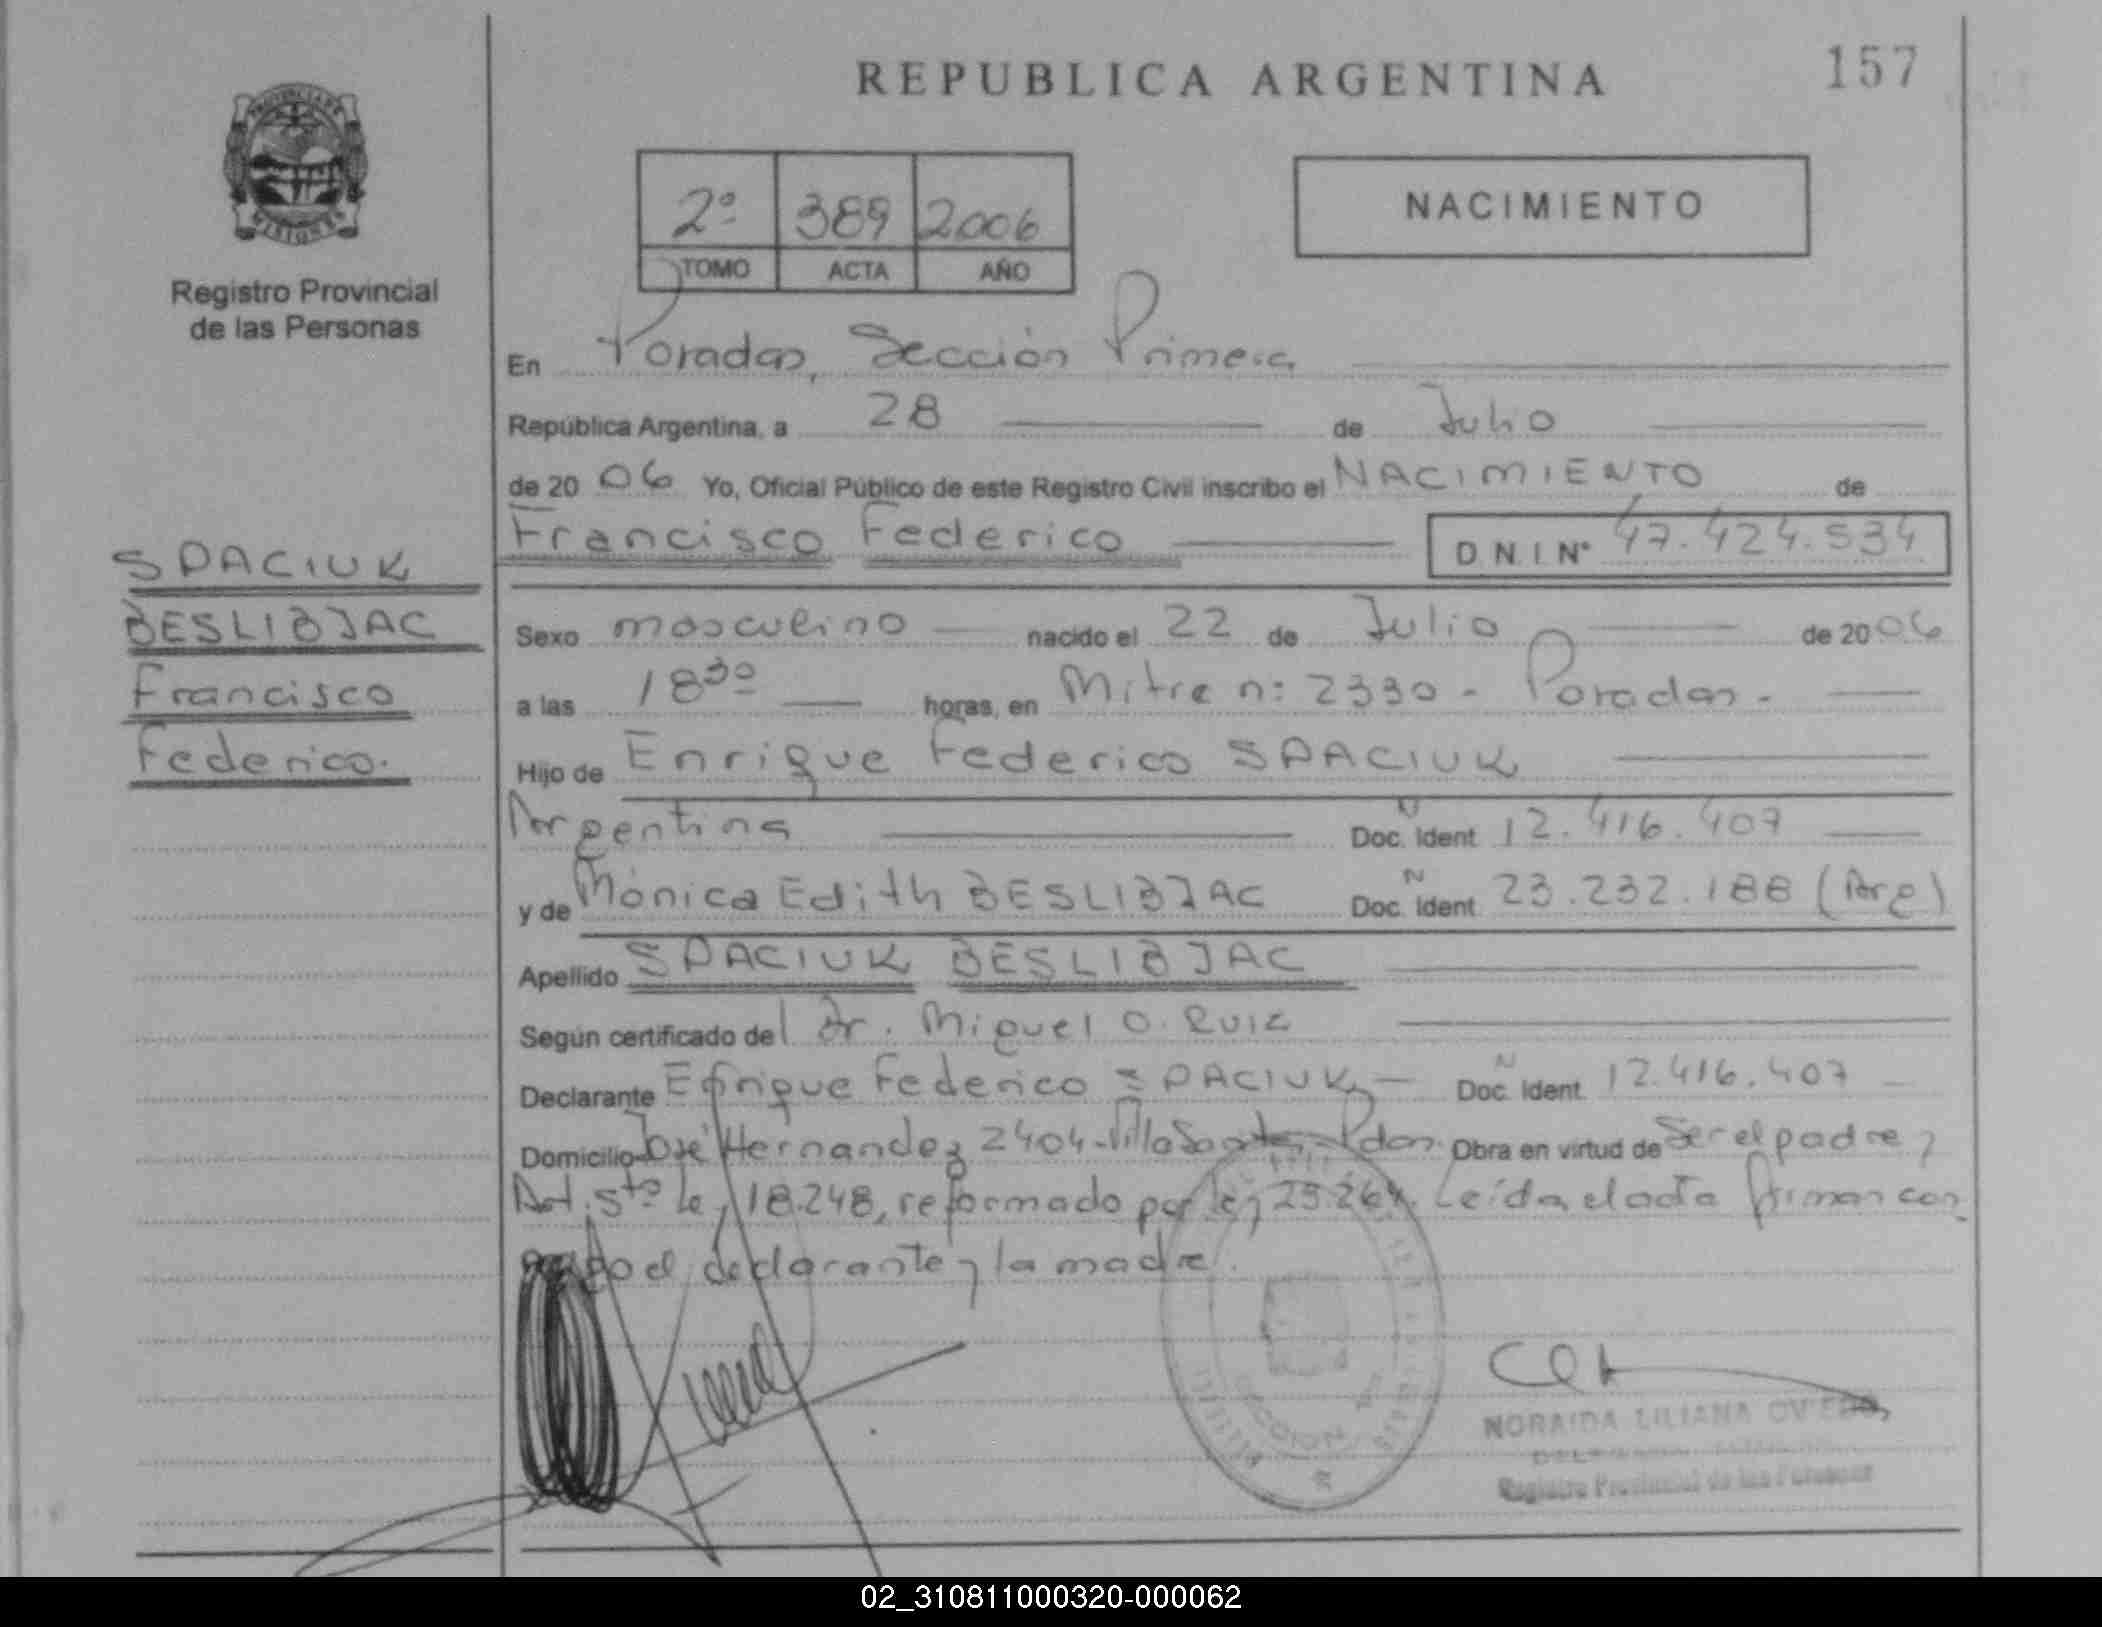 157
REPUBLICA ARGENTINA
PROVINCIA DE
MISIONES
Registro Provincial
de las Personas
2º 389 2006
TOMO ACTA AÑO
NACIMIENTO
En Posadas, Sección Primera
República Argentina, a 28 de Julio
de 2006 Yo, Oficial Público de este Registro Civil inscribo el NACIMIENTO de
Francisco Federico D.N.I. Nº 47.424.534
SPACIUK
BESLIBJAC
Francisco
Federico.
Sexo masculino nacido el 22 de Julio de 2006
a las 18³⁰ horas, en Mitre nº 2330 - Posadas -
Hijo de Enrique Federico SPACIUK
Argentina Doc. Ident N 12.416.407
y de Mónica Edith BESLIBJAC Doc. Ident N 23.232.188 (Arg)
Apellido SPACIUK BESLIBJAC
Según certificado del Dr. Miguel O. Ruiz
Declarante Enrique Federico SPACIUK Doc. Ident N 12.416.407
Domicilio José Hernandez 2404 - Villa Pdas. Obra en virtud de Ser el padre y
Art. 5to ley 18.248, reformado por ley 25.264. Leída el acta firman con
el declarante y la madre.
SECCION
NORAIDA LILIANA OVIEDO
Registro Provincial de las Personas
02_310811000320-000062